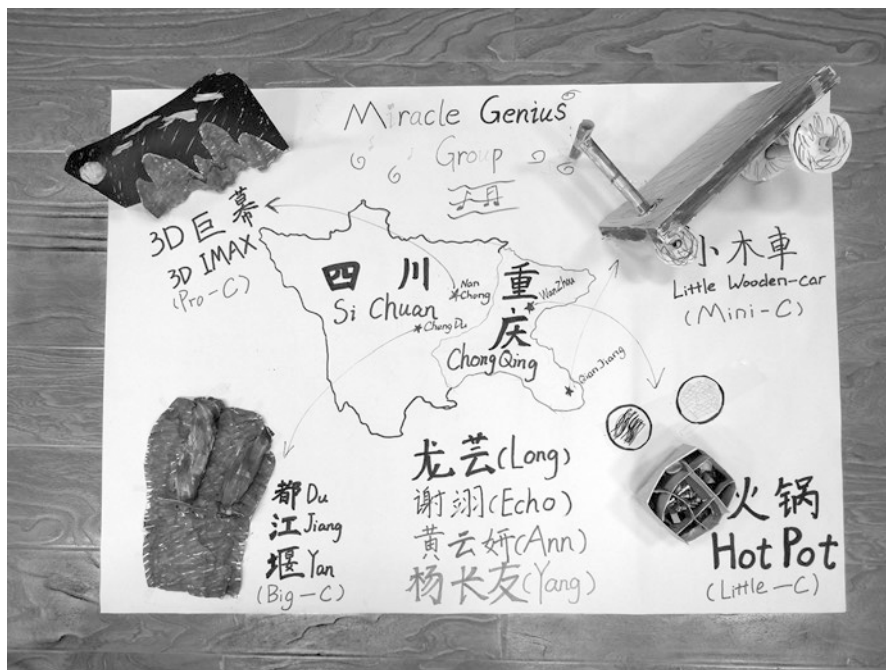 Miracle Genius
Group
3D巨幕
3D IMAX
(Pro-C)
四川
Si Chuan
Nan
Chong
Cheng Du
重
庆
ChongQing
WanZhou
QianJiang
小木車
Little Wooden-car
(Mini-C)
都Du
江Jiang
堰Yan
(Big-C)
龙芸(Long)
谢翊(Echo)
黄云妍(Ann)
杨长友(Yang)
火锅
Hot Pot
(Little-C)